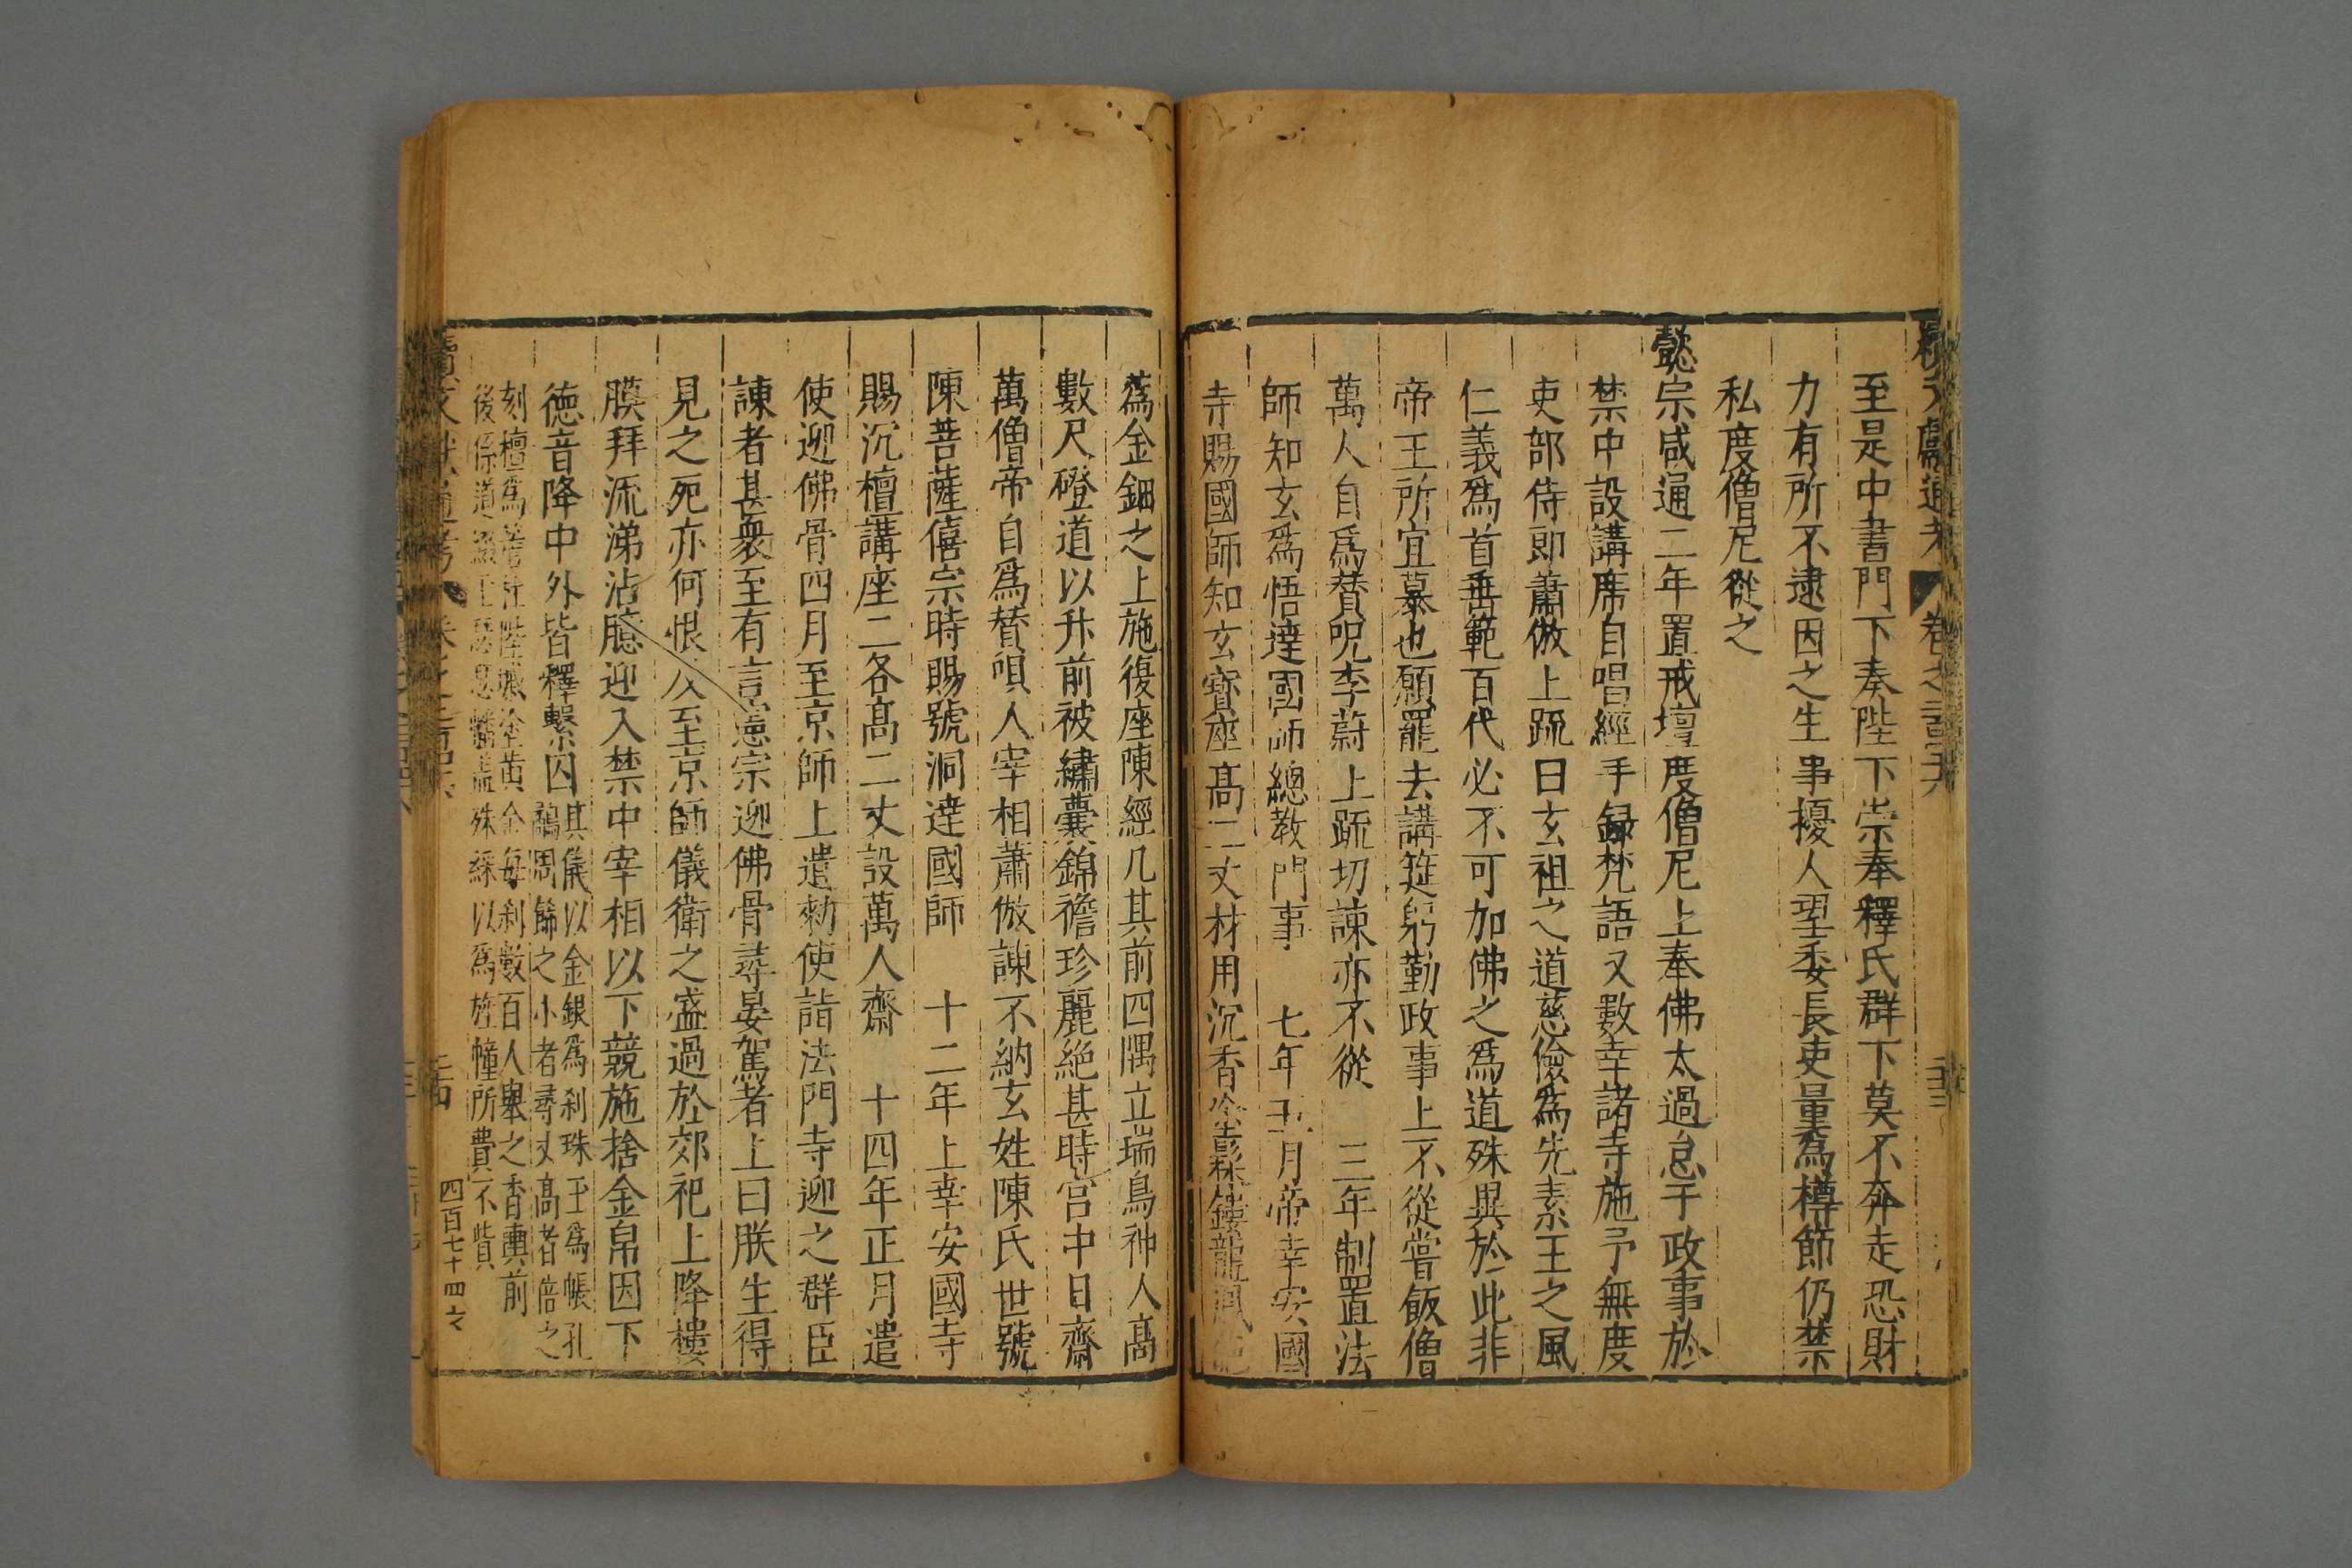 至是中書門下奏陛下崇奉釋氏群下莫不奔走恐財
力有所不逮因之生事擾人望委長吏量爲樽節仍禁
私度僧尼從之
懿宗咸通二年置戒壇度僧尼上奉佛太過怠于政事於
禁中設講席自唱經手録梵語又數幸諸寺施予無度
吏部侍郎蕭倣上疏曰玄祖之道慈儉爲先素王之風
仁義爲首垂範百代必不可加佛之爲道殊異於此非
帝王所宜慕也願罷去講筵躬勤政事上不從嘗飯僧
萬人自爲賛呪李蔚上疏切諫亦不從 三年制置法
師知玄爲悟達國師總教門事 七年五月帝幸安國
寺賜國師知玄寶座髙二丈材用沉香塗髹鏤龍鳳
爲金鈿之上施復座陳經几其前四隅立瑞鳥神人髙
數尺磴道以升前被繡囊錦襜珍麗絶甚時宫中日齋
萬僧帝自爲賛唄人宰相蕭倣諫不納玄姓陳氏世號
陳菩薩僖宗時賜號洞達國師 十二年上幸安國寺
賜沉檀講座二各髙二丈設萬人齋 十四年正月遣
使迎佛骨四月至京師上遣勑使詣法門寺迎之群臣
諫者甚衆至有言憲宗迎佛骨尋晏駕者上曰朕生得
見之死亦何恨及至京師儀衛之盛過於郊祀上降樓
膜拜流涕沾臆迎入禁中宰相以下競施捨金帛因下
德音降中外皆釋繫囚
其儀以金銀爲刹珠玉爲帳孔
鷸周餙之小者尋丈髙者倍之
刻檀爲簷注陛墄塗黄金每刹數百人舉之香輿前
後係道綴以瑟瑟幡蓋殊綵以爲旌幢所費不貲
四百七十四